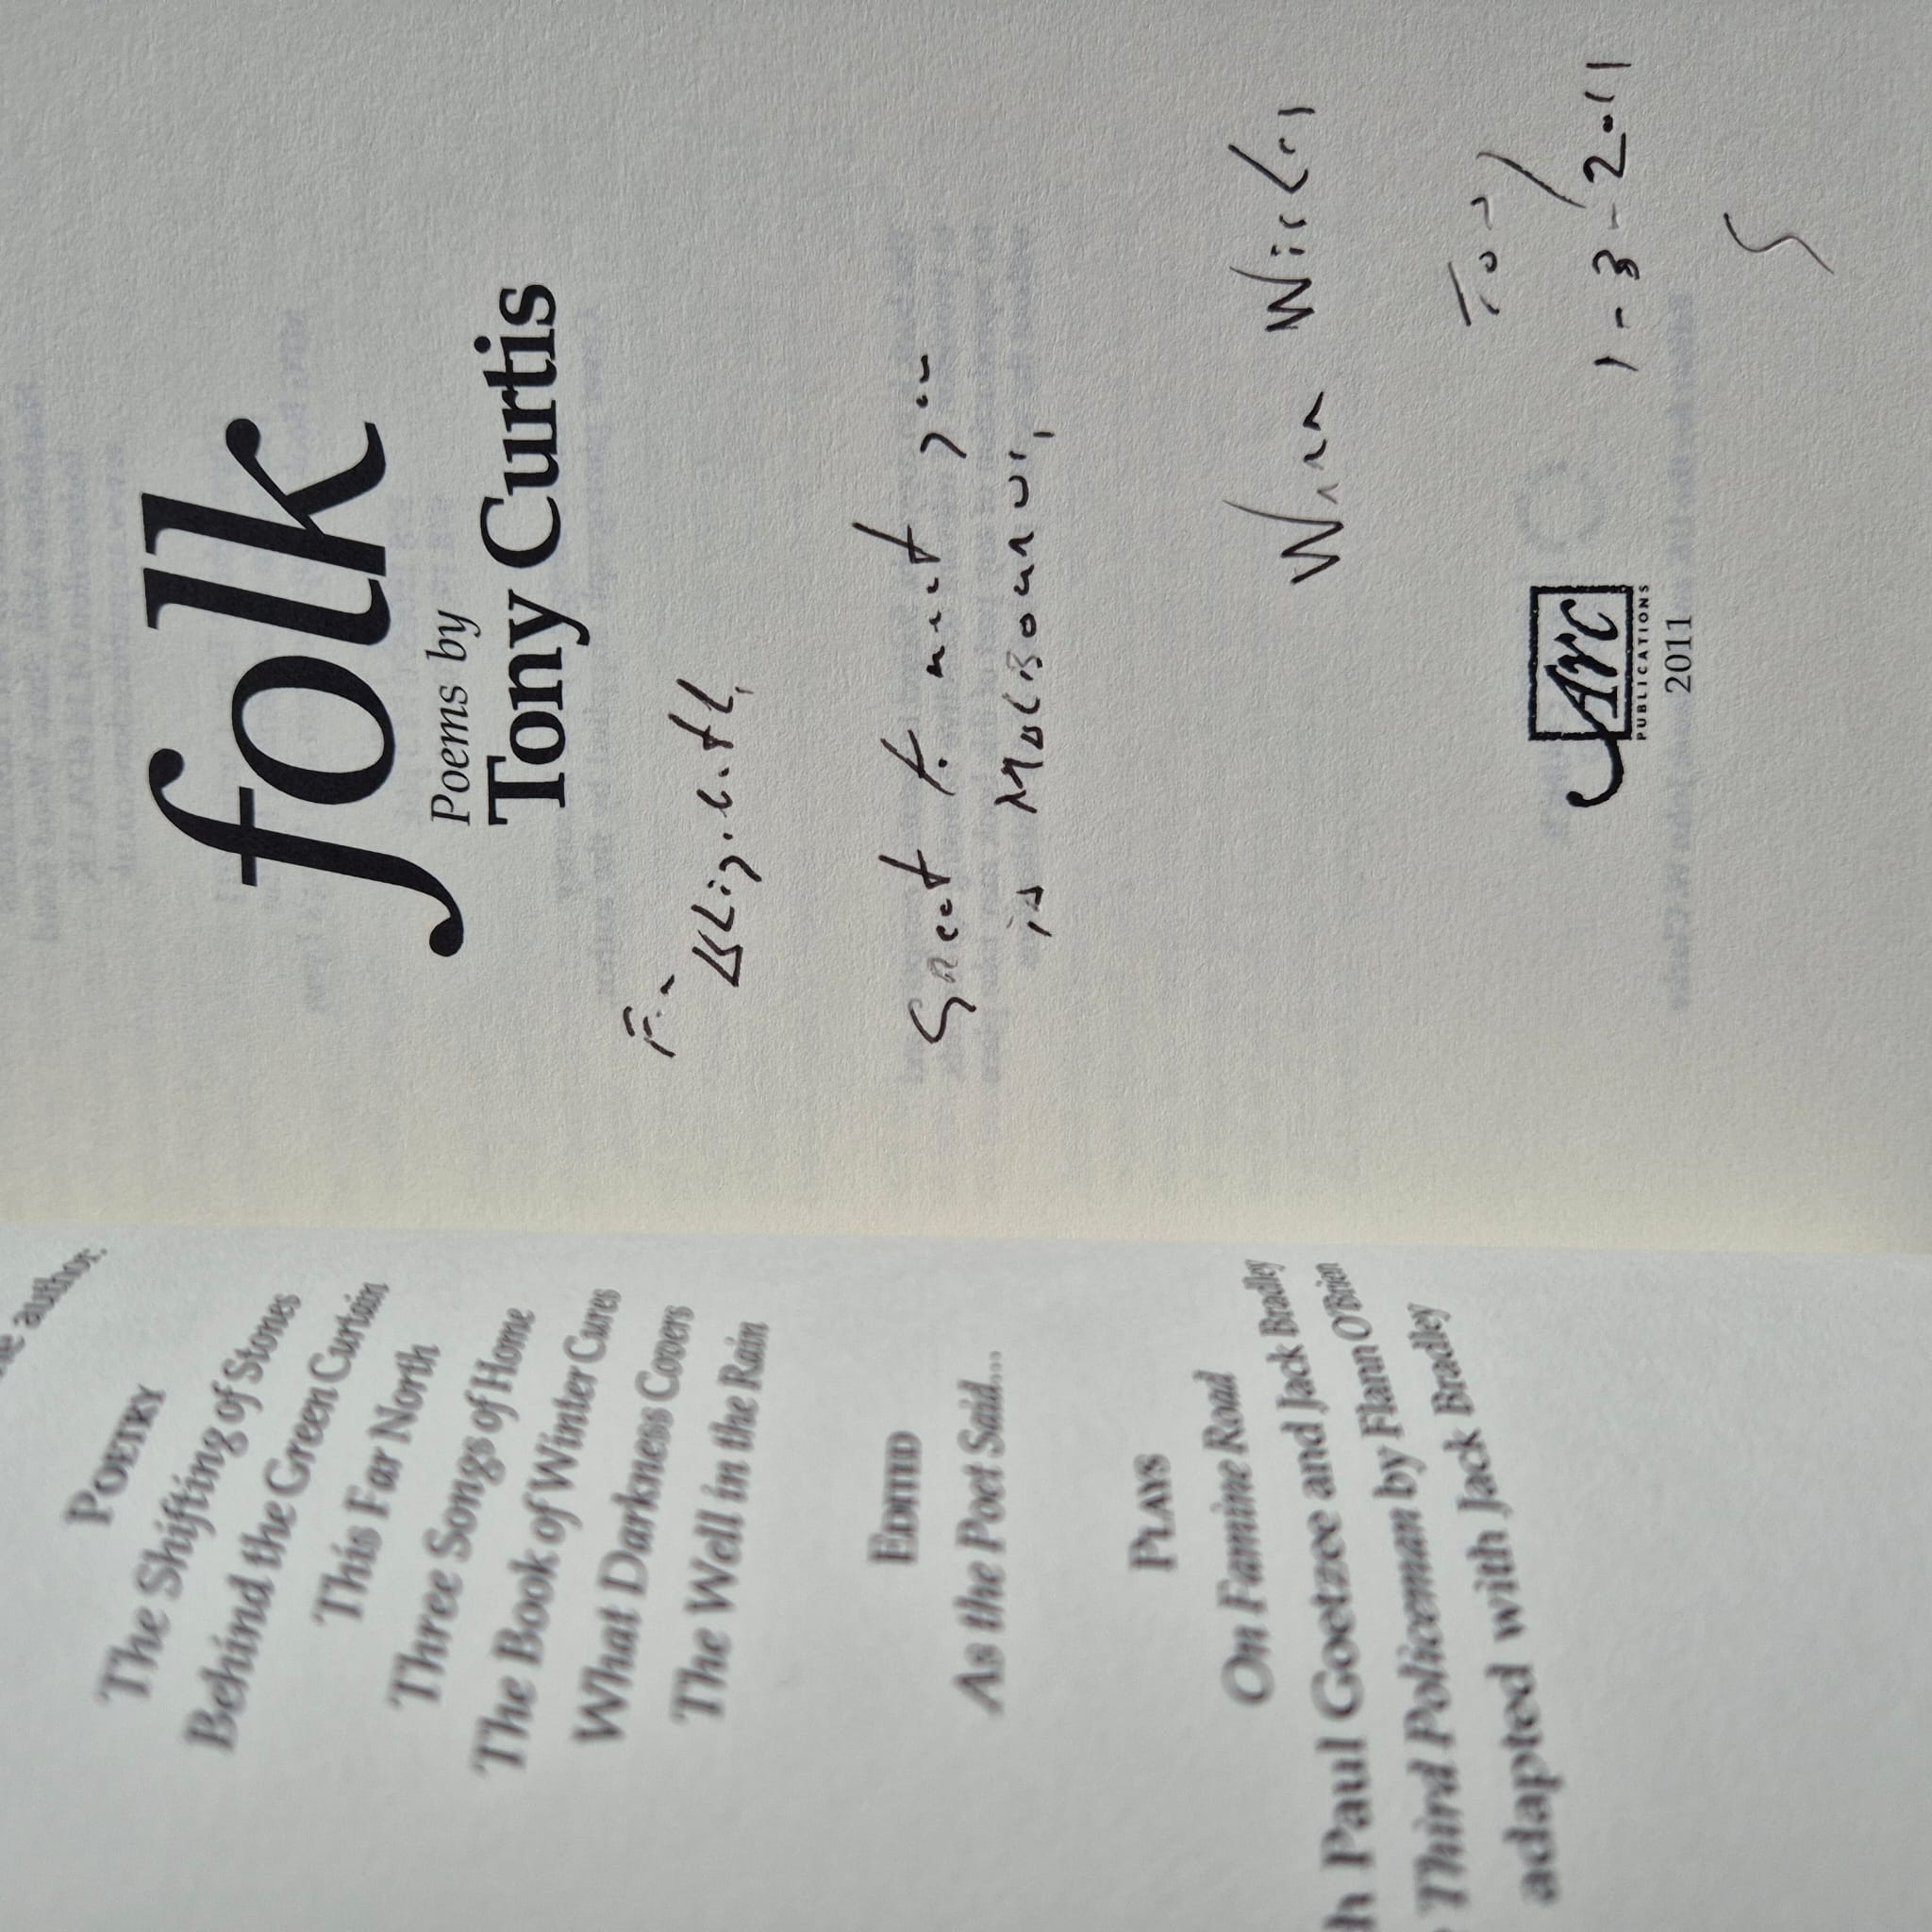 author.
POETRY
The Shifting of Stones
Behind the Green Curtain
This Far North
Three Songs of Home
The Book of Winter Cures
What Darkness Covers
The Well in the Rain
EDITED
As the Poet Said...
PLAYS
On Famine Road
Paul Goetzee and Jack Bradley
Third Policeman by Flann O'Brien
adapted with Jack Bradley
folk
Poems by
Tony Curtis
For
Great to meet you
in
Warm Wishes
Tony
1-3-2011
Arc
PUBLICATIONS
2011